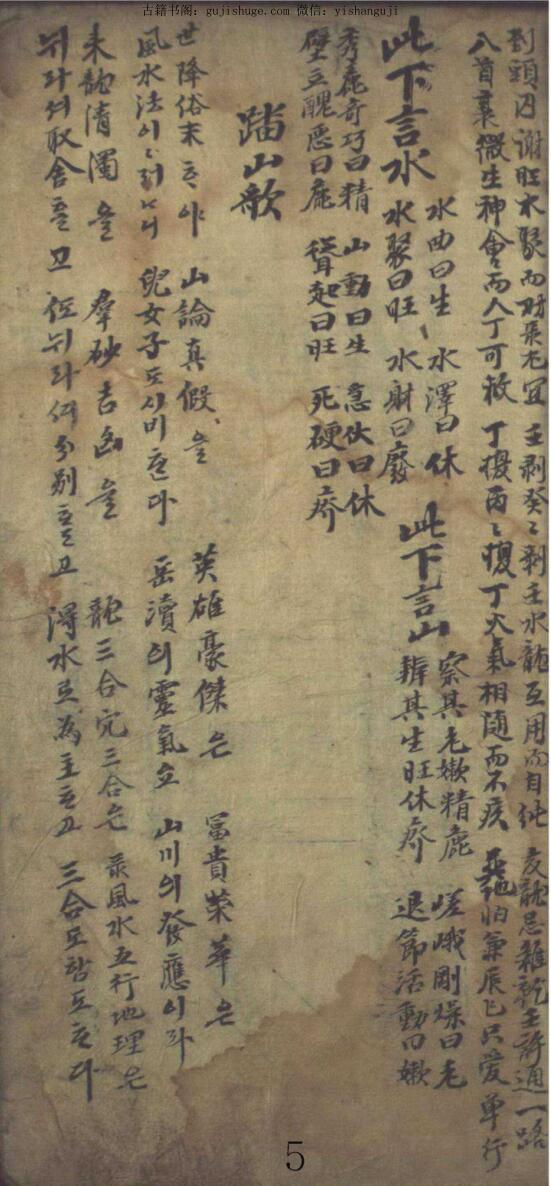 古籍书阁：gujishuge.com 微信：yishanguji
到頭囚謝旺水聚而財長尤宜 壬剥癸〻剥壬水龍互用而自純 亥龍忌雜乾壬許通一路
八首衰微生神會而人丁可救 丁換丙〻換丁火氣相隨而不疾 巽怕兼辰巳只愛單行
此下言水
水曲曰生 水澤曰休
水聚曰旺 水射曰廢
此下言山
察其老嫩精麁 嵯峨剛燥曰老
辨其生旺休瘠 退節活動曰嫩
秀麗奇巧曰精 山動曰生 急伏曰休
壁立醜惡曰麁 聳起曰旺 死硬曰瘠
踏山歌
世降俗末ᄒᆞ야 山論真假을 英雄豪傑은 冨貴榮華은
風水法이〻러니 兒女子도시비ᄒᆞᆫ다 岳瀆의靈氣立 山川의發應이라
来龍清濁을 羣砂吉凶을 龍三合穴三合은 風水五行地理은
뉘라셔取舍ᄒᆞᆯ고 뉘라셔分別ᄒᆞᆯ고 得水로為主ᄒᆞ고 三合도합도ᄒᆞ다
5